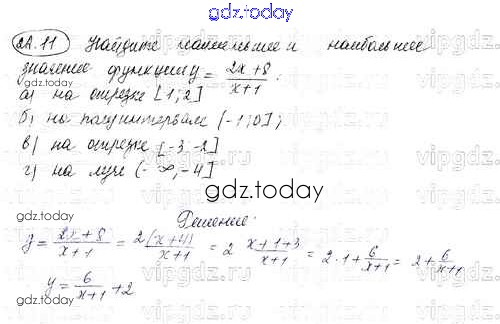 gdz.today
2А.11 Найдите наименьшее и наибольшее
значение функции y = \frac{2x+8}{x+1} :
а) на отрезке [1; 2]
б) на полуинтервале (-1; 0];
в) на отрезке [-3; -2]
г) на луче (-∞, -4]
gdz.today
Решение:
y = \frac{2x+8}{x+1} = \frac{2(x+4)}{x+1} = 2 \frac{x+1+3}{x+1} = 2·1 + \frac{6}{x+1} = 2 + \frac{6}{x+1}
y = \frac{6}{x+1} + 2
gdz.today
vipgdz
vipgdz
vipgdz
vipgdz